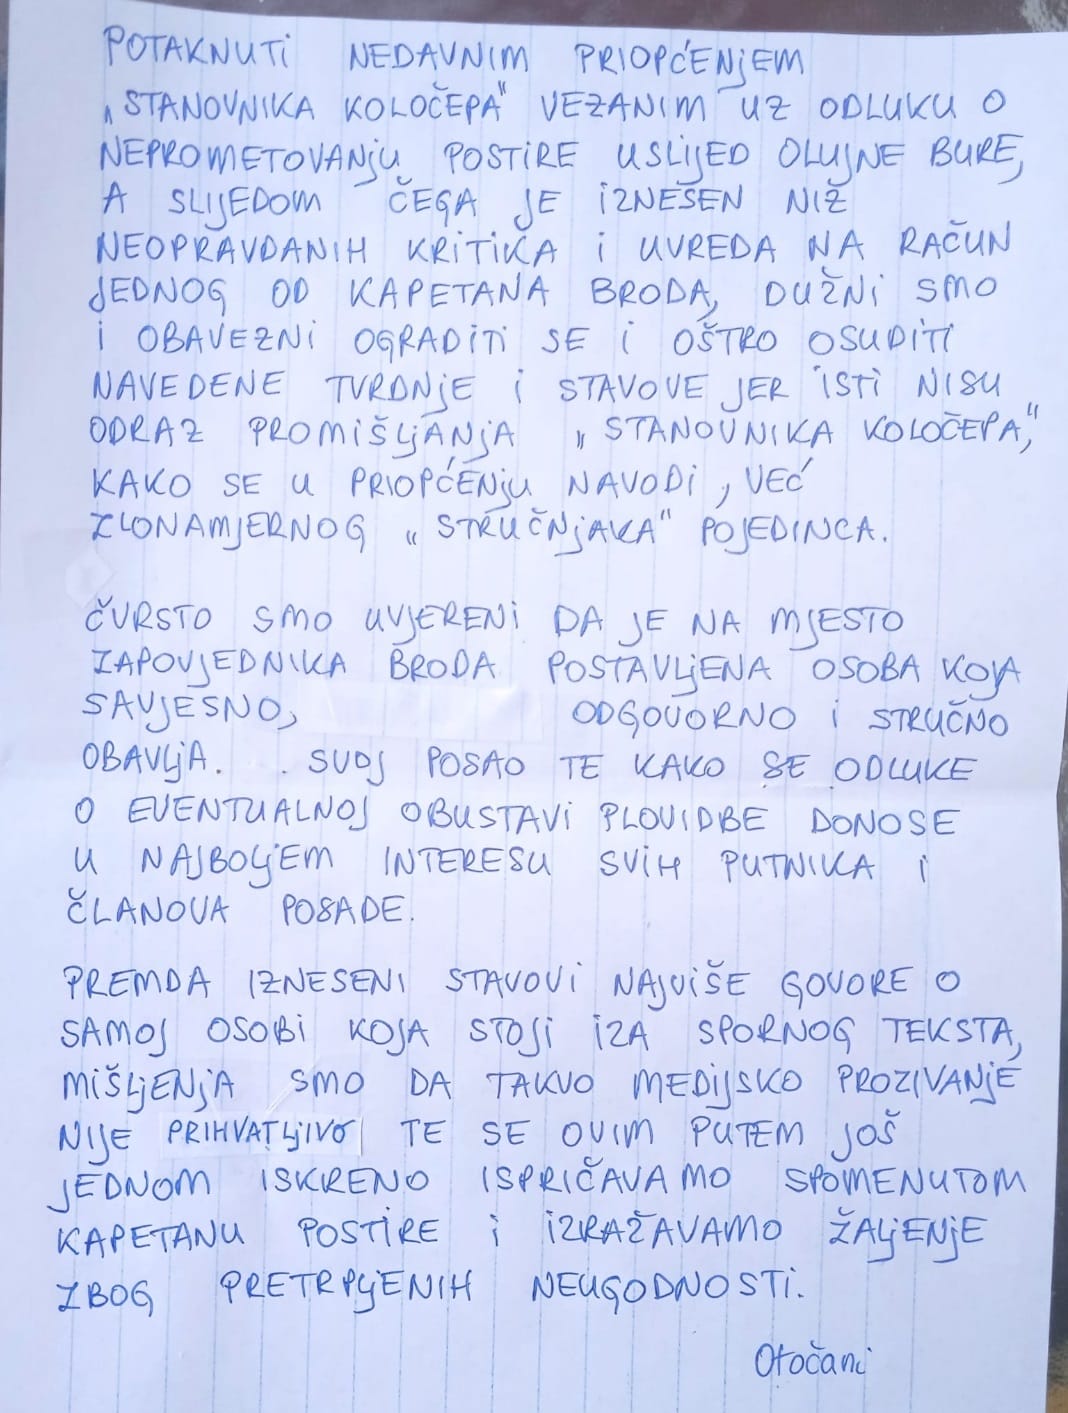 POTAKNUTI NEDAVNIM PRIOPĆENJEM
„STANOVNIKA KOLOČEPA" VEZANIM UZ ODLUKU O
NEPROMETOVANJU POSTIRE USLIJED OLUJNE BURE,
A SLIJEDOM ČEGA JE IZNEŠEN NIZ
NEOPRAVDANIH KRITIKA I UVREDA NA RAČUN
JEDNOG OD KAPETANA BRODA, DUŽNI SMO
I OBAVEZNI OGRADITI SE I OŠTRO OSUDITI
NAVEDENE TVRDNJE I STAVOVE JER ISTI NISU
ODRAZ PROMIŠLJANJA „STANOVNIKA KOLOČEPA,"
KAKO SE U PRIOPĆENJU NAVODI, VEĆ
ZLONAMJERNOG „STRUČNJAKA" POJEDINCA.
ČVRSTO SMO UVJERENI DA JE NA MJESTO
ZAPOVJEDNIKA BRODA POSTAVLJENA OSOBA KOJA
SAVJESNO, ODGOVORNO I STRUČNO
OBAVLJA. . SVOJ POSAO TE KAKO SE ODLUKE
O EVENTUALNOJ OBUSTAVI PLOVIDBE DONOSE
U NAJBOLJEM INTERESU SVIH PUTNIKA I
ČLANOVA POSADE.
PREMDA IZNESENI STAVOVI NAJVIŠE GOVORE O
SAMOJ OSOBI KOJA STOJI IZA SPORNOG TEKSTA,
MIŠLJENJA SMO DA TAKVO MEDIJSKO PROZIVANJE
NIJE PRIHVATLJIVO TE SE OVIM PUTEM JOŠ
JEDNOM ISKRENO ISPRIČAVAMO SPOMENUTOM
KAPETANU POSTIRE I IZRAŽAVAMO ŽALJENJE
ZBOG PRETRPLJENIH NEUGODNOSTI.
Otočani